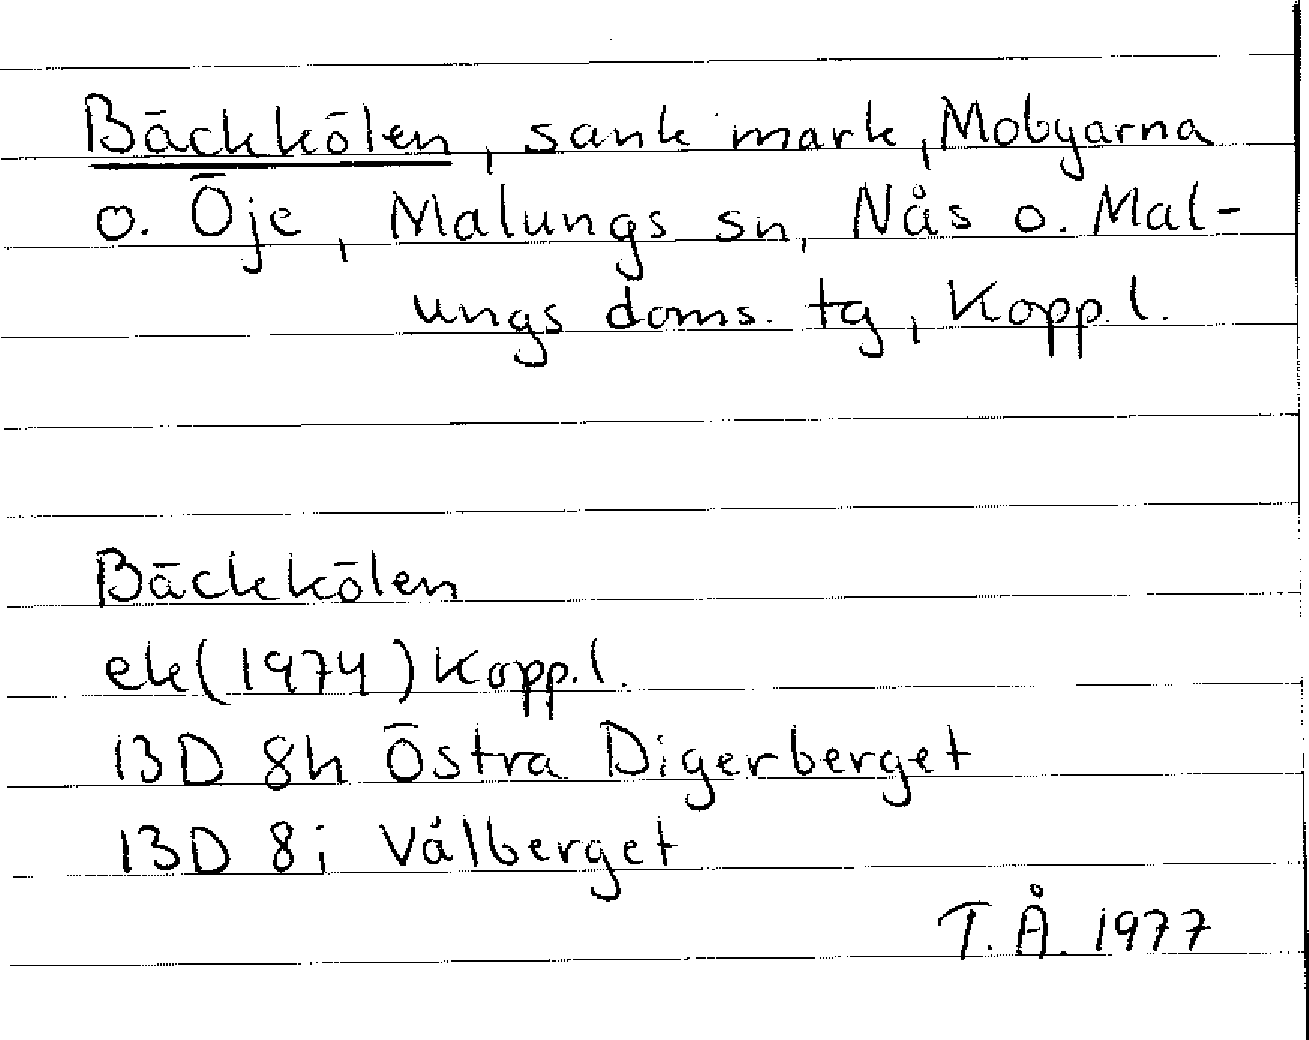 Bäckkölen, sank mark, Mobyarna
o. Öje, Malungs sn, Nås o. Mal-
ungs doms. tg, Kopp. l.
Bäckkölen
ek (1974) Kopp. l.
13D 8h Östra Digerberget
13D 8i Vålberget
T.Å. 1977